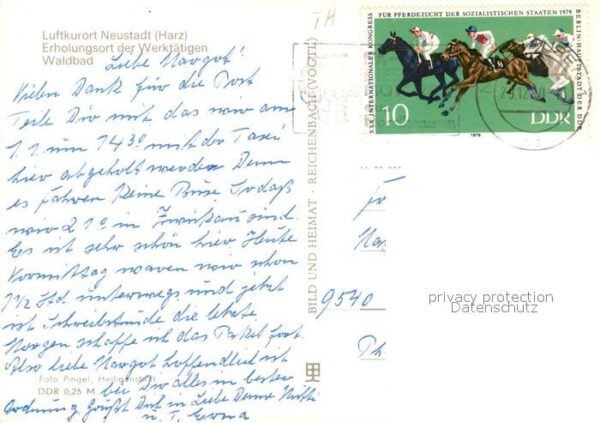 TH
Luftkurort Neustadt (Harz)
Erholungsort der Werktätigen
Waldbad
Liebe Margot!
Vielen Dank für die Post
Teile Dir mit das wir am
1.1. um 14³⁰ mit der Taxi
hier abgeholt werden Denn
es fahren keine Busse Sodaß
wir 21⁰ in Zwickau sind.
Es ist sehr schön hier Heute
Vormittag waren wir schon
1½ Std. unterwegs und jetzt
ist Schreibstunde die letzte
Morgen schaffe ich das Paket fort.
Also liebe Margot hoffendlich ist
bei Dir alles im besten
Ordnung Grüßt Dich in Liebe Deine Mutti
u. T. Erna
Foto Pingel, Heiligenstadt
DDR 0,25 M
BILD UND HEIMAT · REICHENBACH (VOGTL)
XXX. INTERNATIONALER KONGRESS
FÜR PFERDEZUCHT DER SOZIALISTISCHEN STAATEN 1979
BERLIN-HAUPTSTADT DER DDR
10
DDR
1979
9540
Th
privacy protection
Datenschutz